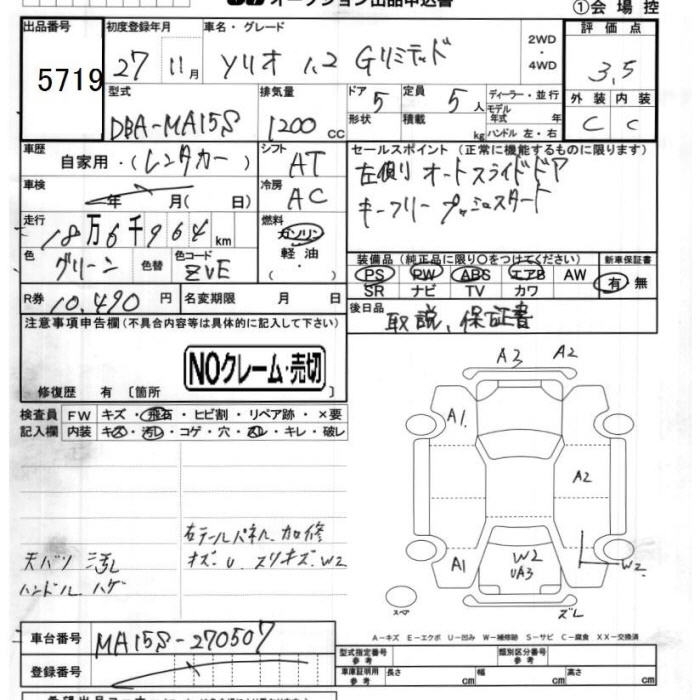 オークション出品申込書
①会場控
出品番号 初度登録年月 車名・グレード 2WD・4WD 評価点
5719 27 11月 ソリオ 1.2 Gリミテッド 3.5
型式 排気量 ドア 5 定員 5人 ディーラー・並行 外装 内装
DBA-MA15S 1200cc 形状 積載 kg モデル年式 年 C C
ハンドル 左・右
車歴 自家用・(レンタカー) シフト AT セールスポイント (正常に機能するものに限ります)
車検 年 月( 日) 冷房 AC 左側りオートスライドドア
キーフリープッシュスタート
走行 18万6千964km 燃料 ガソリン 軽油・( )
色 グリーン 色替 色コード ZVE
装備品 (純正品に限り○をつけてください) 新車保証書
PS PW ABS エアB AW 有 無
SR ナビ TV カワ
R券 10,490円 名変期限 月 日
後日品 取説、保証書
注意事項申告欄 (不具合内容等は具体的に記入して下さい)
NOクレーム・売切
修復歴 有 〔箇所 〕
検査員 FW キズ・飛石・ヒビ割・リペア跡・×要
記入欄 内装 キズ・汚レ・コゲ・穴・スレ・キレ・破レ
A3 A2
A1.
A2
右テールパネル.加修
天バリ汚れ キズ.U.スリキズ.W2
ハンドル.ハゲ
A1 W2 UA3 W2
スペア ズレ
A-キズ E-エクボ U-凹み W-補修跡 S-サビ C-腐食 XX-交換済
車台番号 MA15S-270507
登録番号
型式指定番号参考 類別区分番号参考
車庫証明用参考 長さ cm 幅 cm 高さ cm